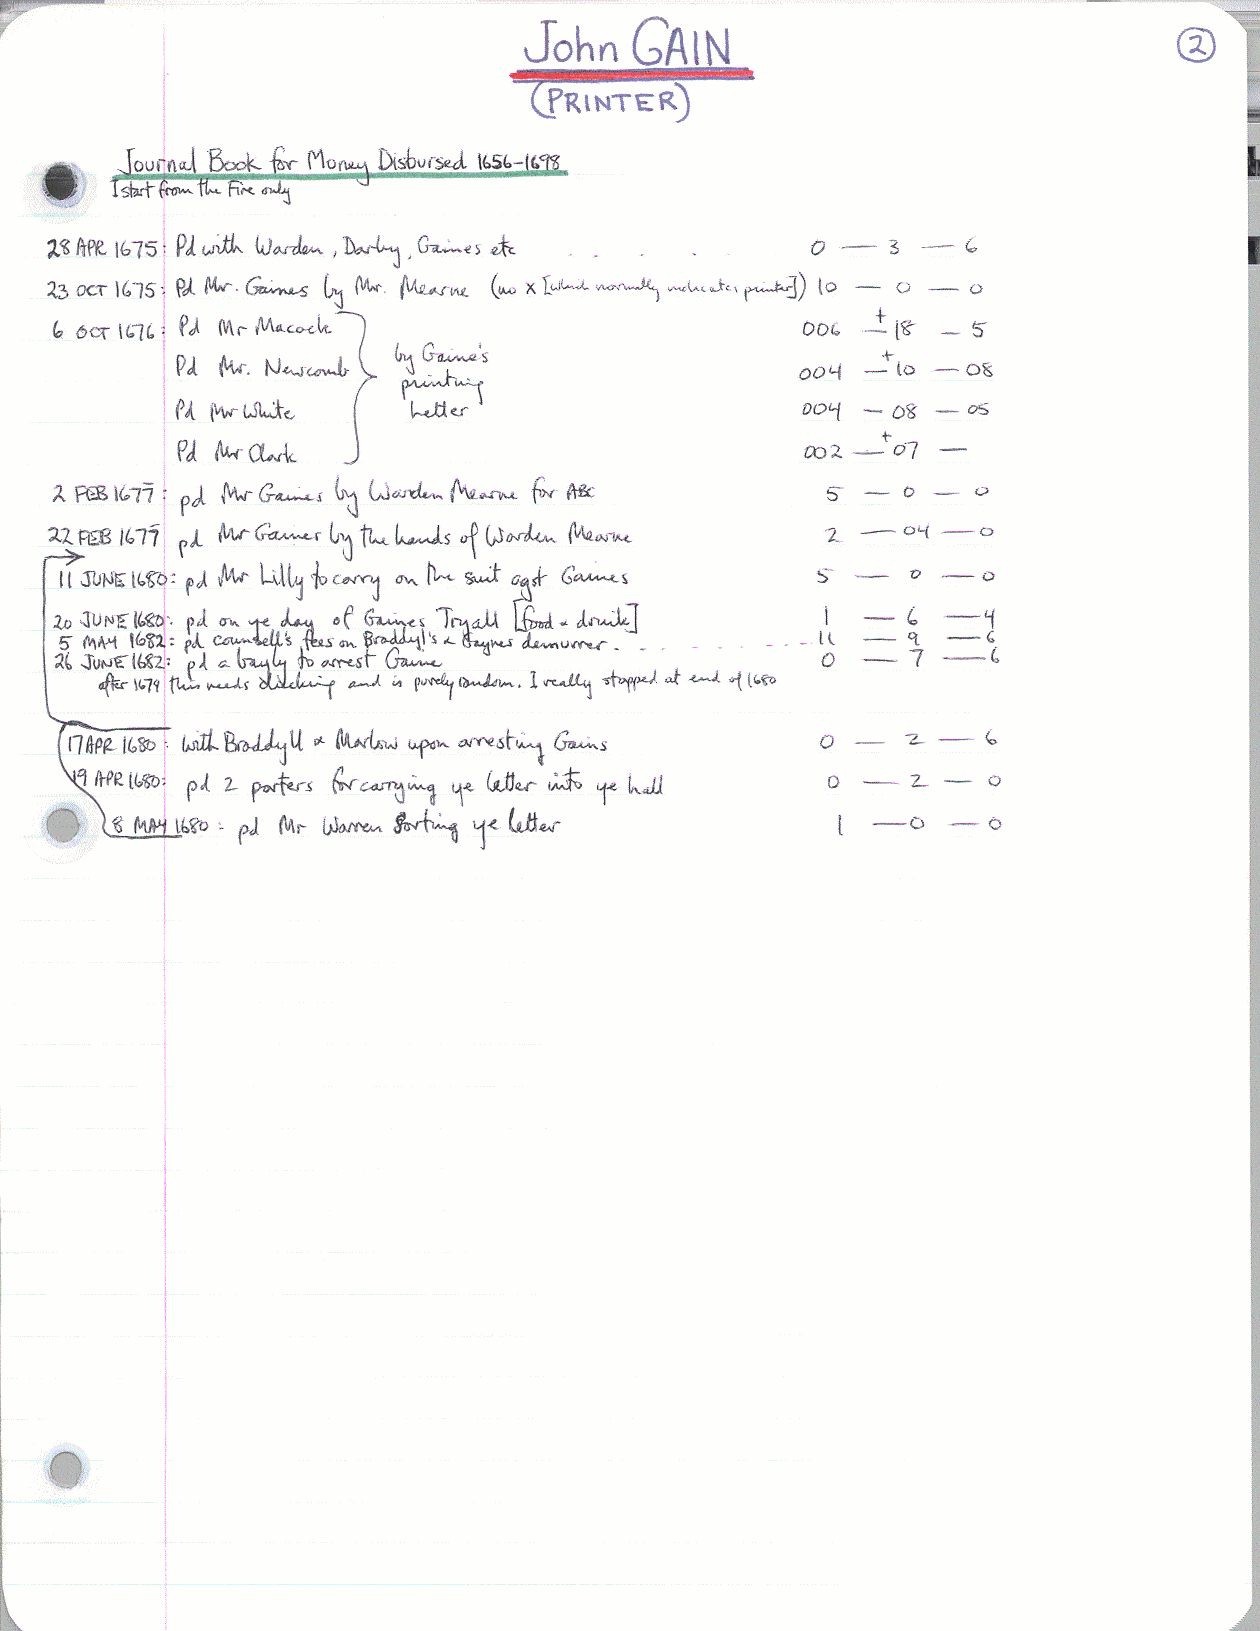 John GAIN
2
(PRINTER)
Journal Book for Money Disbursed 1656-1698
I start from the Fire only
28 APR 1675: Pd with Warden, Darby, Gaines etc . . . . 0 — 3 — 6
23 OCT 1675: Pd Mr. Gaines by Mr. Mearne (no X [which normally indicates printer]) 10 — 0 — 0
6 OCT 1676: Pd Mr Macock 006 +— 18 — 5
Pd Mr. Newcomb 004 +— 10 — 08
by Gaine's
printing
letter
Pd Mr White 004 — 08 — 05
Pd Mr Clark 002 +— 07 —
2 FEB 1677: pd Mr Gaines by Warden Mearne for ABC 5 — 0 — 0
22 FEB 1677 pd Mr Gaines by the hands of Warden Mearne 2 — 04 — 0
11 JUNE 1680: pd Mr Lilly to carry on the suit agst Gaines 5 — 0 — 0
20 JUNE 1680: pd on ye day of Gaines Tryall [food & drink] 1 — 6 — 4
5 MAY 1682: pd counsell's fees on Braddyl's & Haynes demurrer. . . . . . . . 11 — 9 — 6
26 JUNE 1682: pd a bayly to arrest Gaine 0 — 7 — 6
after 1679 this needs checking and is purely random. I really stopped at end of 1680
17 APR 1680: with Braddyll & Marlow upon arresting Gains 0 — 2 — 6
19 APR 1680: pd 2 porters for carrying ye letter into ye hall 0 — 2 — 0
8 MAY 1680: pd Mr Warren Sorting ye letter 1 — 0 — 0